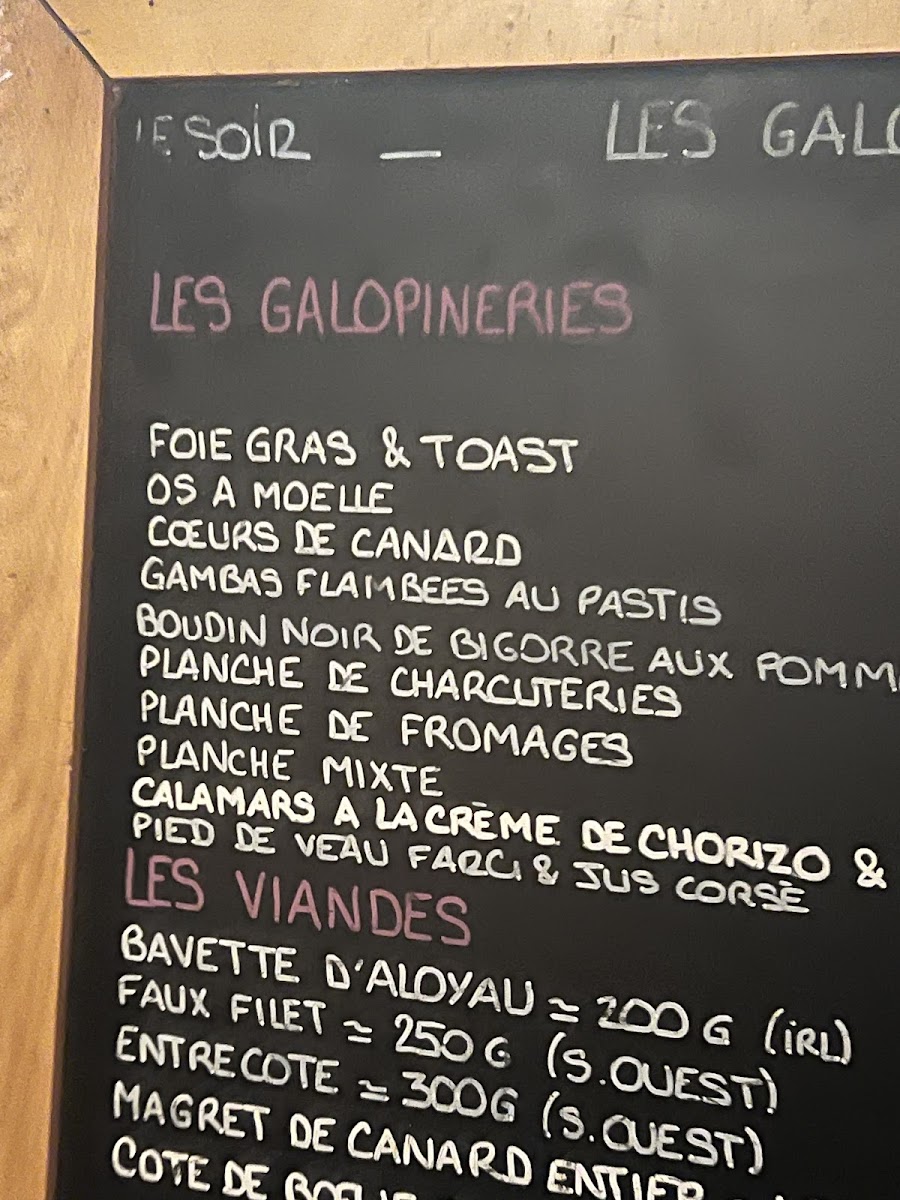 LE SOIR — LES GALO
LES GALOPINERIES
FOIE GRAS & TOAST
OS A MOELLE
CŒURS DE CANARD
GAMBAS FLAMBEES AU PASTIS
BOUDIN NOIR DE BIGORRE AUX POMM
PLANCHE DE CHARCUTERIES
PLANCHE DE FROMAGES
PLANCHE MIXTE
CALAMARS A LA CRÈME DE CHORIZO &
PIED DE VEAU FARCI & JUS CORSÉ
LES VIANDES
BAVETTE D'ALOYAU ≃ 200 G (IRL)
FAUX FILET ≃ 250 G (S.OUEST)
ENTRECOTE ≃ 300G (S.OUEST)
MAGRET DE CANARD ENTIER
COTE DE BOEUF